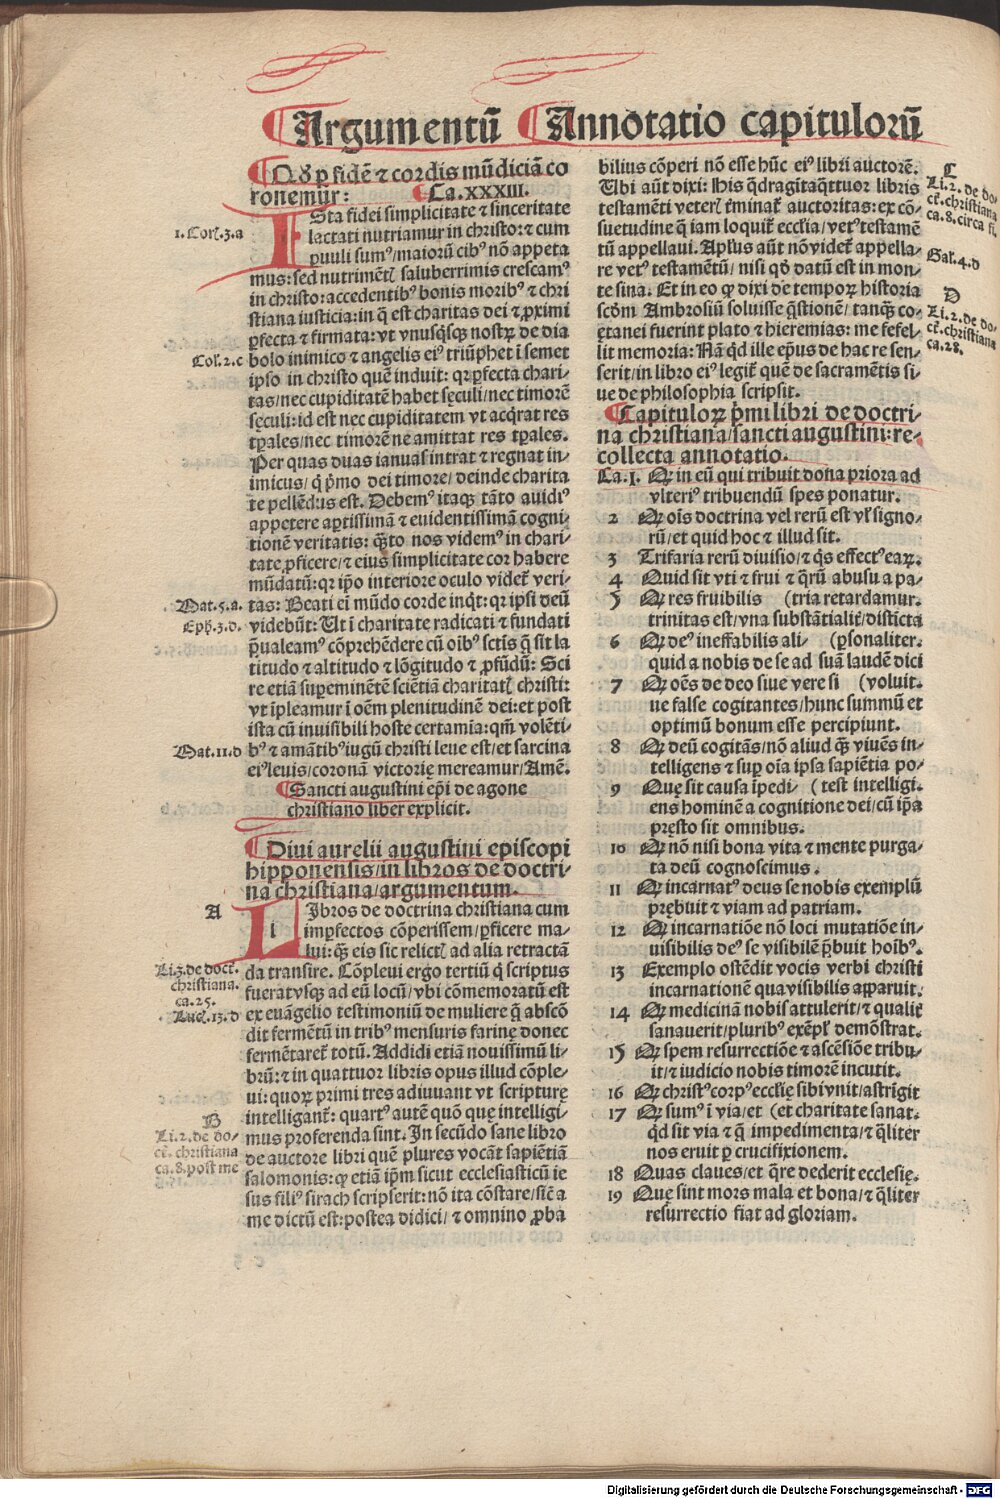 Argumentū Annotatio capitulorū
Qd ꝑ fidē ⁊ cordis mūdiciā co
ronemur: Ca.XXXIII.
ISta fidei simplicitate ⁊ sinceritate
lactati nutriamur in christo: ⁊ cum
ꝑuuli sumꝰ/ maiorū cibꝰ nō appeta
mus: sed nutrimētꝭ saluberrimis crescamꝰ
in christo: accedentibꝰ bonis moribꝰ ⁊ chri
stiana iusticia: in q̄ est charitas dei ⁊ ꝓximi
ꝑfecta ⁊ firmata: vt vnusq̄sq̄ nostꝝ de dia
bolo inimico ⁊ angelis eiꝰ triūphet ī semet
ipso in christo quē induit: qꝛ ꝑfecta chari-
tas/ nec cupiditatē habet sęculi/ nec timorē
sęculi: id est nec cupiditatem vt acq̄rat res
tꝑales/ nec timorē ne amittat res tꝑales.
Per quas duas ianuas intrat ⁊ regnat in-
imicus/ q̄ p̄mo dei timore/ deinde charita
te pellēdꝰ est. Debemꝰ itaqꝫ tāto auidiꝰ
appetere aꝑtissimā ⁊ euidentissimā cogni-
tionē veritatis: q̄ȝto nos videmꝰ in chari-
tate ꝓficere/ ⁊ eius simplicitate cor habere
mūdatū: qꝛ ip̄o interiore oculo videt̃ veri-
tas: Beati eī mūdo corde inq̄t: qꝛ ipsi deū
videbūt: Ut ī charitate radicati ⁊ fundati
p̄ualeamꝰ cōprehēdere cū oībꝰ sctīs q̄ sit la
titudo ⁊ altitudo ⁊ lōgitudo ⁊ ꝓfūdū: Sci
re etiā suꝑeminētē sciētiā charitatꝭ christi:
vt īpleamur ī oēm plenitudinē dei: et post
ista cū inuisibili hoste certamīa: qm̄ volēti-
bꝰ ⁊ amātibꝰ iugū christi leue est/ et sarcina
eiꝰ leuis/ coronā victorię mereamur/ Amē.
Sancti augustini ep̄i de agone
christiano liber explicit.
Diui aurelii augustini episcopi
hipponensis/ in libros de doctri
na christiana/ argumentum.
LIbros de doctrina christiana cum
l
imꝑfectos cōperissem/ ꝑficere ma-
lui: q̄ȝ eis sic relictꝭ ad alia retractā
da transire. Cōpleui ergo tertiū q̄ scriptus
fuerat vsqȝ ad eū locū/ vbi cōmemoratū est
ex euāgelio testimoniū de muliere q̄ abscō
dit fermētū in tribꝰ mensuris farinę donec
fermētaret̃ totū. Addidi etiā nouissimū li-
brū: ⁊ in quattuor libris opus illud cōple-
ui: quoꝝ primi tres adiuuant vt scripturę
intelligant̃: quartꝰ autē quō quę intelligi-
mus proferenda sint. In secūdo sane libro
de auctore libri quē plures vocāt sapiētiā
salomonis: ꝙ etiā ip̄m sicut ecclesiasticū ie
sus filiꝰ sirach scripserit: nō ita cōstare/ sic̄ a
me dictū est: postea didici/ ⁊ omnino ꝓba
1.Corꝭ.3.a
Col.2.c
Mat.5.a.
Eph.3.d.
Mat.11.d
A
Li.3.de doct̃.
christiana.
ca.25.
Lucꝭ.13.d
B
Li.2.de do-
ct̃. christiana
ca.8.post me
bilius cōperi nō esse hūc eiꝰ libri auctorē.
Ubi aūt dixi: his q̄dragīta q̄ttuor libris
testamēti veterꝭ t̃minat̃ auctoritas: ex cō-
suetudine q̄ iam loquit̃ ecclīa/ vetꝰ testamē
tū appellaui. Apl̄us aūt nō videt̃ appella-
re vetꝰ testamētū/ nisi qd̄ datū est in mon-
te sina. Et in eo ꝙ dixi de tempoꝝ historia
scōm Ambrosiū soluisse q̄stionē/ tanq̄ȝ co-
ętanei fuerint plato ⁊ hieremias: me fefel-
lit memoria: Nā q̄d ille ep̄us de hac re sen-
serit/ in libro eiꝰ legit̃ quē de sacramētis si-
ue de philosophia scripsit.
Capituloꝝ p̄mi libri de doctri-
na christiana/ sancti augustini: re-
collecta annotatio.
Ca.1. Qꝛ in eū qui tribuit dona priora ad
vlteriꝰ tribuendū spes ponatur.
2 Qꝛ oīs doctrina vel rerū est vl̄ signo-
rū/ et quid hoc ⁊ illud sit.
3 Trifaria rerū diuisio/ ⁊ q̄s effectꝰ eaꝝ.
4 Quid sit vti ⁊ frui ⁊ q̄rū abusu a pa-
5 Qꝛ res fruibilis (tria retardamur.
trinitas est/ vna substātialit̃/ distīcta
6 Qꝛ deꝰ ineffabilis ali- (ꝑsonaliter.
quid a nobis de se ad suā laudē dici
7 Qꝛ oēs de deo siue vere si (voluit.
ue false cogitantes/ hunc summū et
optimū bonum esse percipiunt.
8 Qꝛ deū cogitās/ nō aliud q̄ȝ viuēs in-
telligens ⁊ suꝑ oīa ipsa sapiētia po-
9 Quę sit causa īpedi- (test intelligi.
ens hominē a cognitione dei/ cū ip̄a
pręsto sit omnibus.
10 Qꝛ nō nisi bona vita ⁊ mente purga-
ta deū cognoscimus.
11 Qꝛ incarnatꝰ deus se nobis exemplū
prębuit ⁊ viam ad patriam.
12 Qꝛ incarnatiōe nō loci mutatiōe in-
uisibilis deꝰ se visibilē p̄buit hoībꝰ.
13 Exemplo ostēdit vocis verbi christi
incarnationē qua visibilis apparuit.
14 Qꝛ medicinā nobis attulerit/ ⁊ qualit̃
sanauerit/ pluribꝰ exēplꝭ demōstrat.
15 Qꝛ spem resurrectiōe ⁊ ascēsiōe tribu-
it/ ⁊ iudicio nobis timorē incutit.
16 Qꝛ christꝰ corpꝰ ecclīę sibi vnit/ astrīgit
17 Qꝛ sumꝰ ī via/ et (et charitate sanat.
q̄d sit via ⁊ q̄ impedimenta/ ⁊ q̄liter
nos eruit ꝑ crucifixionem.
18 Quas claues/ et q̄re dederit ecclesię.
19 Quę sint mors mala et bona/ ⁊ q̄liter
resurrectio fiat ad gloriam.
C
Li.2.de do-
ct̃.christiana
ca.8.circa fi.
Gal.4.d
D
Li.2.de do-
ct̃.christiana
ca.28.
Digitalisierung gefördert durch die Deutsche Forschungsgemeinschaft - DFG